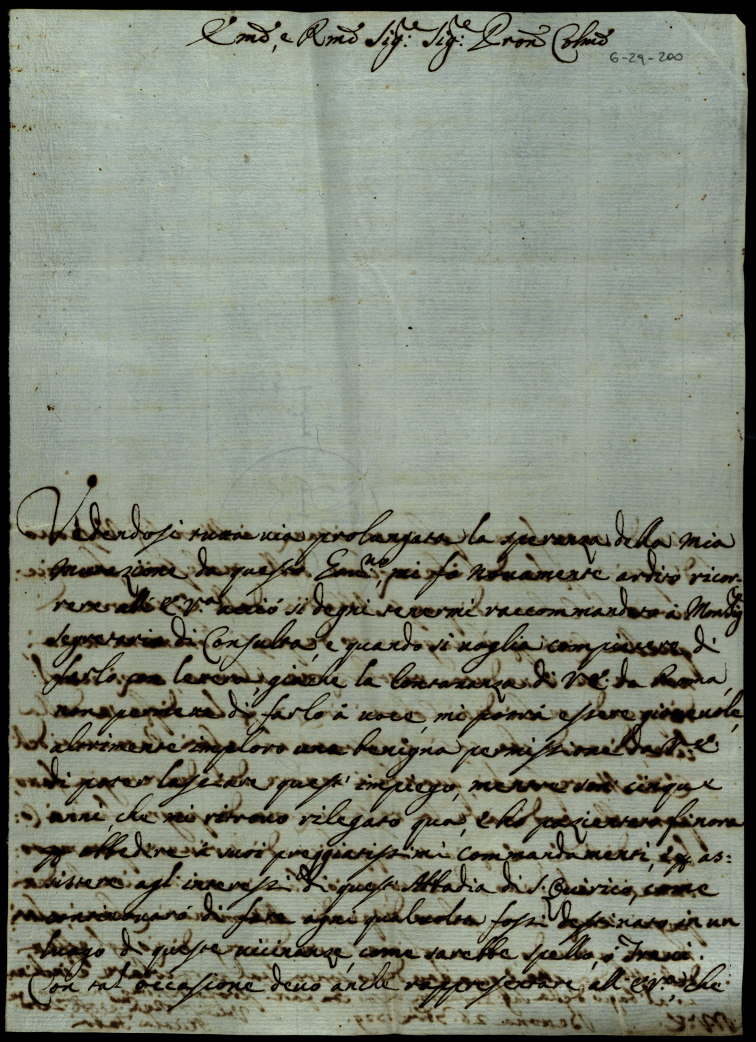 Emõ, e Rmõ Sig.re Sig.re Pron Colmõ
6-29-200
Vedendosi tutta via prolungata la speranza della mia
mutazione da questo Gov.no mi fò novamente ardito ricor-
rere all' E. V.ra acciò si degni tenermi raccommandato à Mons.r
Segretario di Consulta, e quando si voglia compiacere di
farlo con lettera, giache la lontananza di V. E. da Roma,
non permette di farlo à voce, mi potrà essere giovevole,
altrimente imploro una benigna permissione da V. E.
di poter lasciare quest' impiego, mentre son cinque
anni, che mi ritrovo rilegato quà, e hò pazientato finora
p obbedire à suoi preggiatissimi commandamenti, e p as=
sistere agl' interessi di quest' Abbadia di S. Quirico, come
continuarò di fare ogni qualvolta fossi destinato in un
luogo di queste vicinanze, come sarebbe Spello, ò Trevi.
Con tal' occasione devo anche rappresentare all' E. V.ra, che